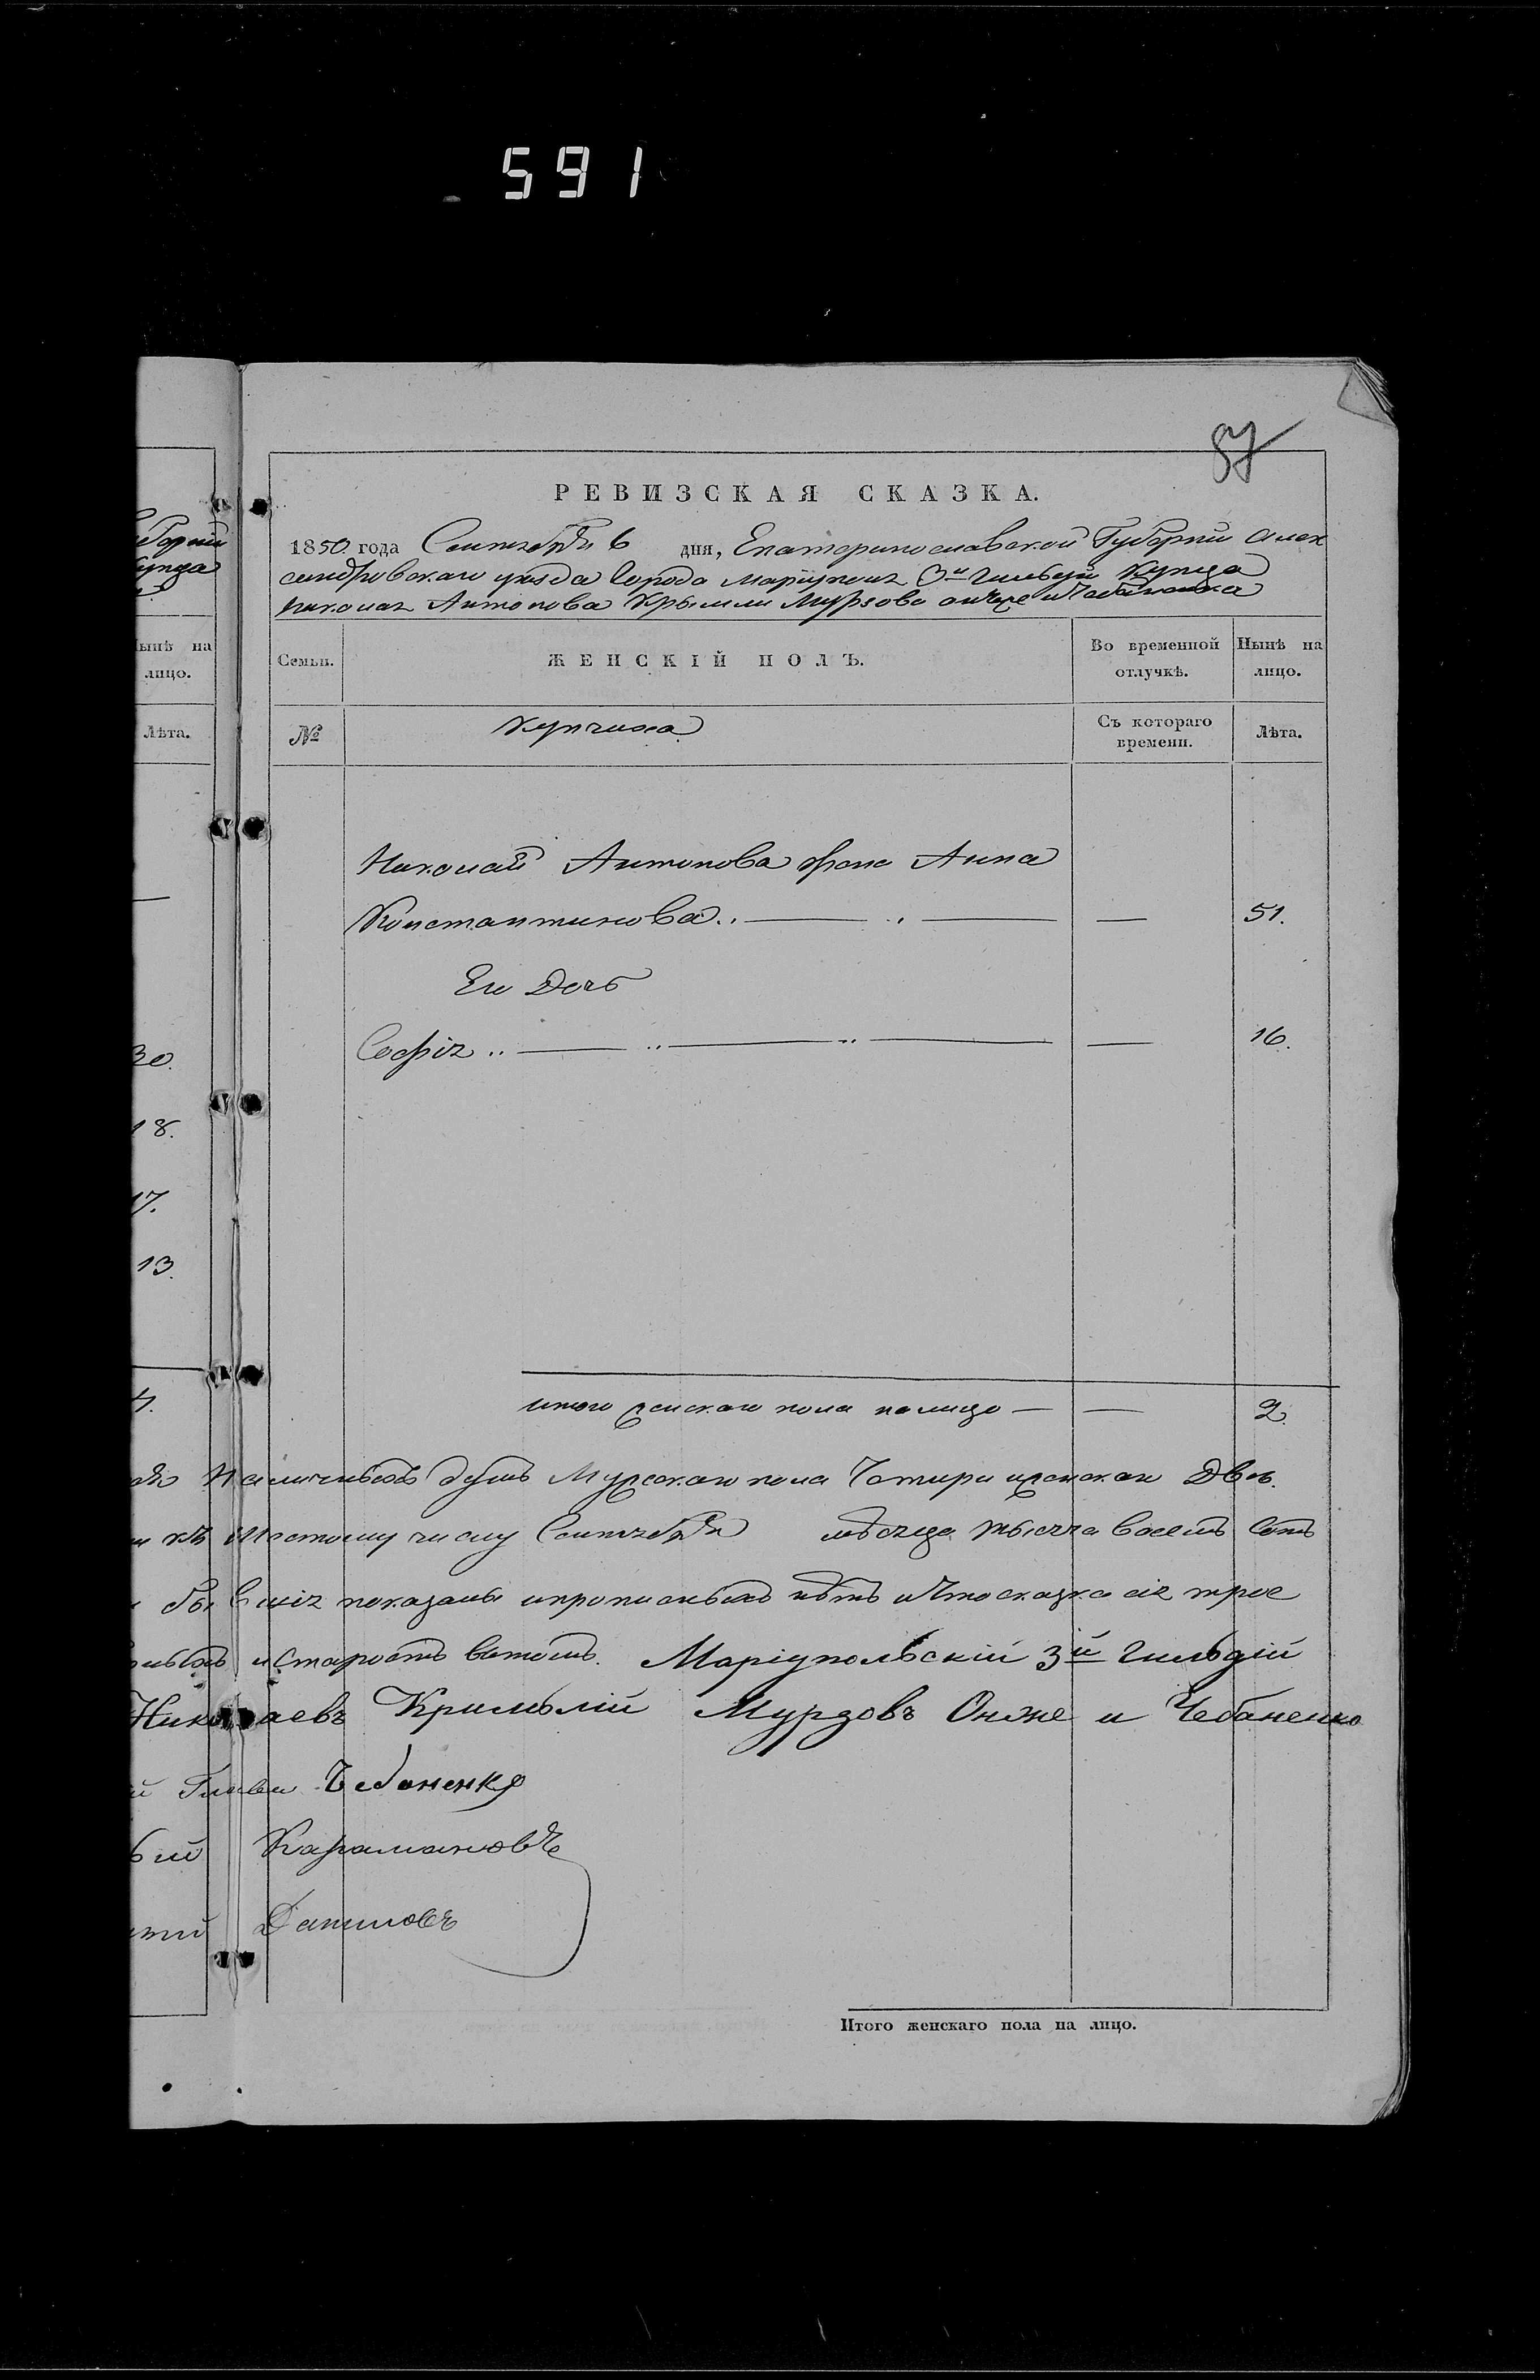 591
87
РЕВИЗСКАЯ СКАЗКА.
1850 года Сентября 6 дня, Екатеринославской Губерніи Алек
сандровскаго уѣзда Города Маріуполя 3й Гильдіи Купца
Николая Антонова Крымли Мурзова онже и Чебаненка
Семьи.
ЖЕНСКІЙ ПОЛЪ.
Во временной отлучкѣ.
Нынѣ на лицо.
№
Купчиха
Съ котораго времени.
Лѣта.
Николай Антонова жена Анна
Константинова 51.
Ея Дочь
Софія 16.
итого женскаго пола налицо 2.
Наличныхъ душъ Мужескаго пола Четыри иженскаго Двѣ.
къ Шестому числу Сентября мѣсяца тысяча восемъ сотъ
показаны ипрописныхъ нѣтъ и Что сказка сія трое
Маріупольскій 3й Гильдій
Николаевъ Кримълій Мурзовъ Онже и Чебаненко
Чебаненко
Карамановъ
Даниловъ
Итого женскаго пола на лицо.
Нынѣ на
лицо.
Лѣта.
30.
18.
17.
13.
4.